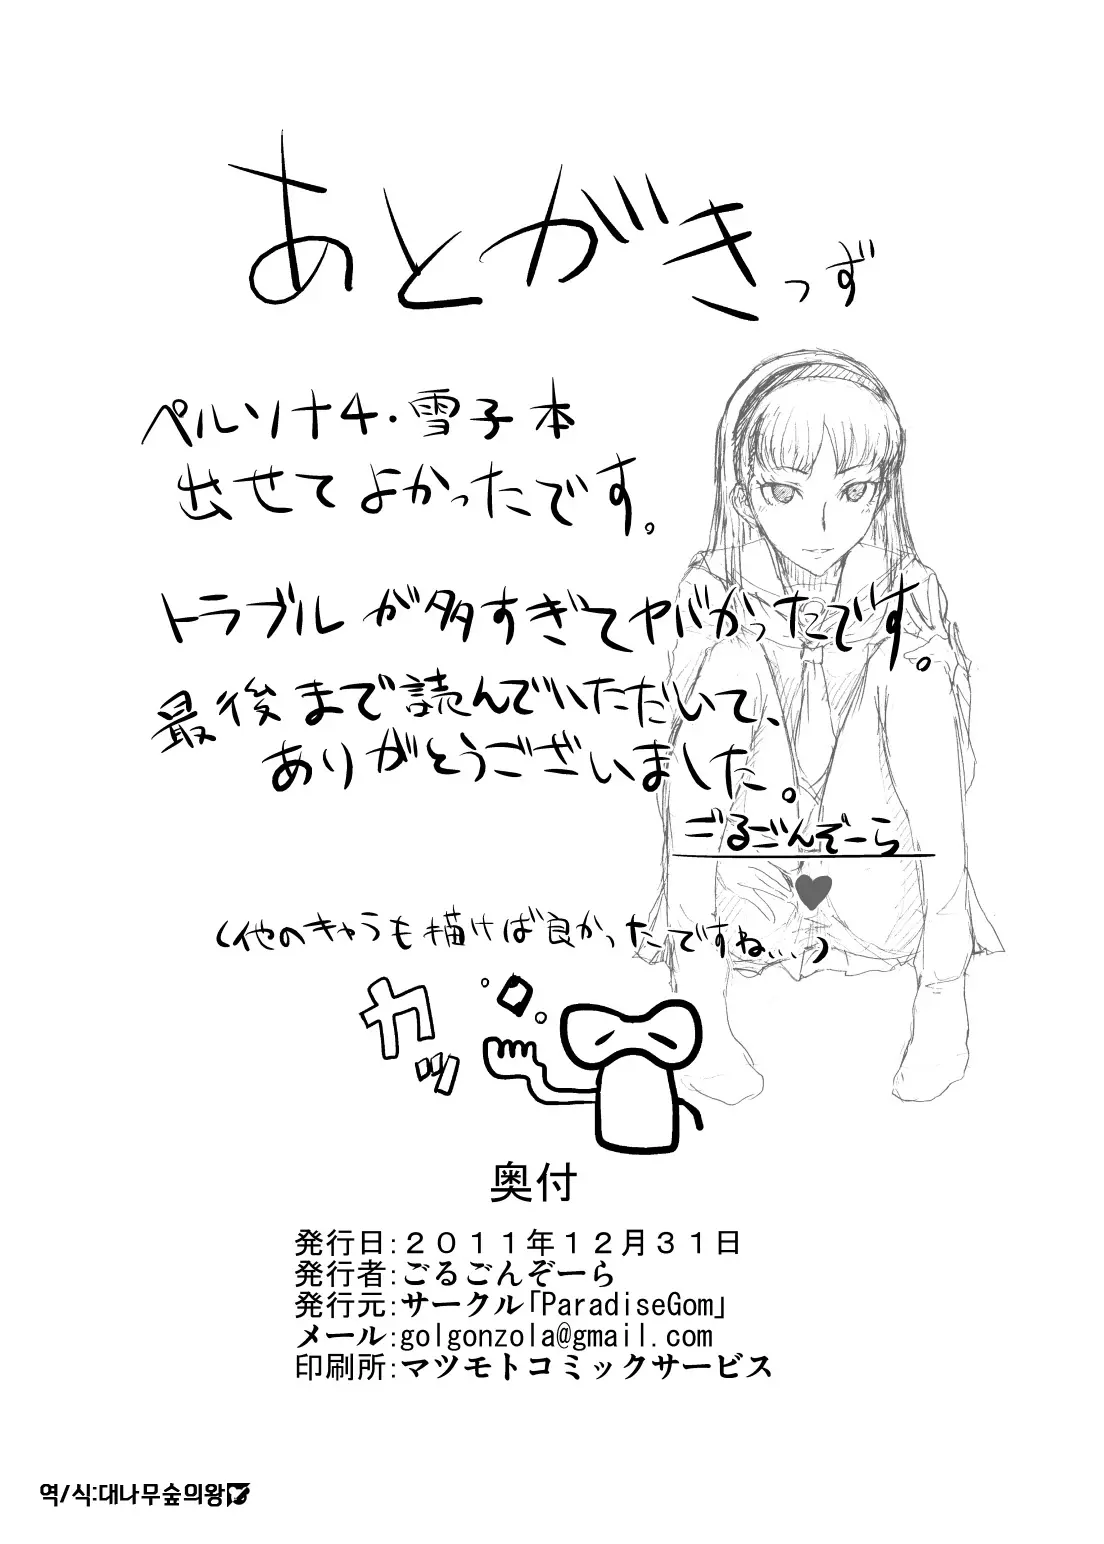 あとがきっず
ペルソナ4・雪子本
出せてよかったです。
トラブルが多すぎてヤバかったです。
最後まで読んでいただいて、
ありがとうございました。
ごるごんぞーら
♥
(他のキャラも描けば良かったですね、、、)
カッ
奥付
発行日:2011年12月31日
発行者:ごるごんぞーら
発行元:サークル「ParadiseGom」
メール:golgonzola@gmail.com
印刷所:マツモトコミックサービス
역/식:대나무숲의왕